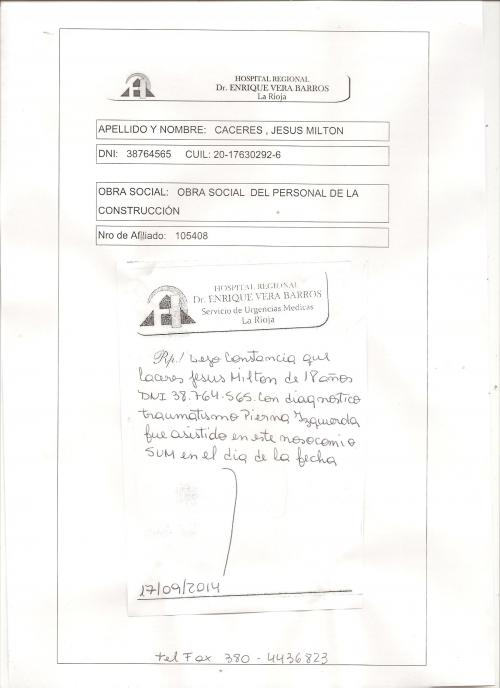 HOSPITAL REGIONAL
Dr. ENRIQUE VERA BARROS
La Rioja
APELLIDO Y NOMBRE: CACERES , JESUS MILTON
DNI: 38764565 CUIL: 20-17630292-6
OBRA SOCIAL: OBRA SOCIAL DEL PERSONAL DE LA
CONSTRUCCIÓN
Nro de Afiliado: 105408
HOSPITAL REGIONAL
Dr. ENRIQUE VERA BARROS
Servicio de Urgencias Medicas
La Rioja
Rp./ Dejo Constancia que
Caceres Jesus Milton de 18 años
DNI 38.764.565. Con diagnostico
traumatismo Pierna Izquierda
fue asistido en este nosocomio
SUM en el dia de la fecha
17/09/2014
tel Fax 380 - 4436823